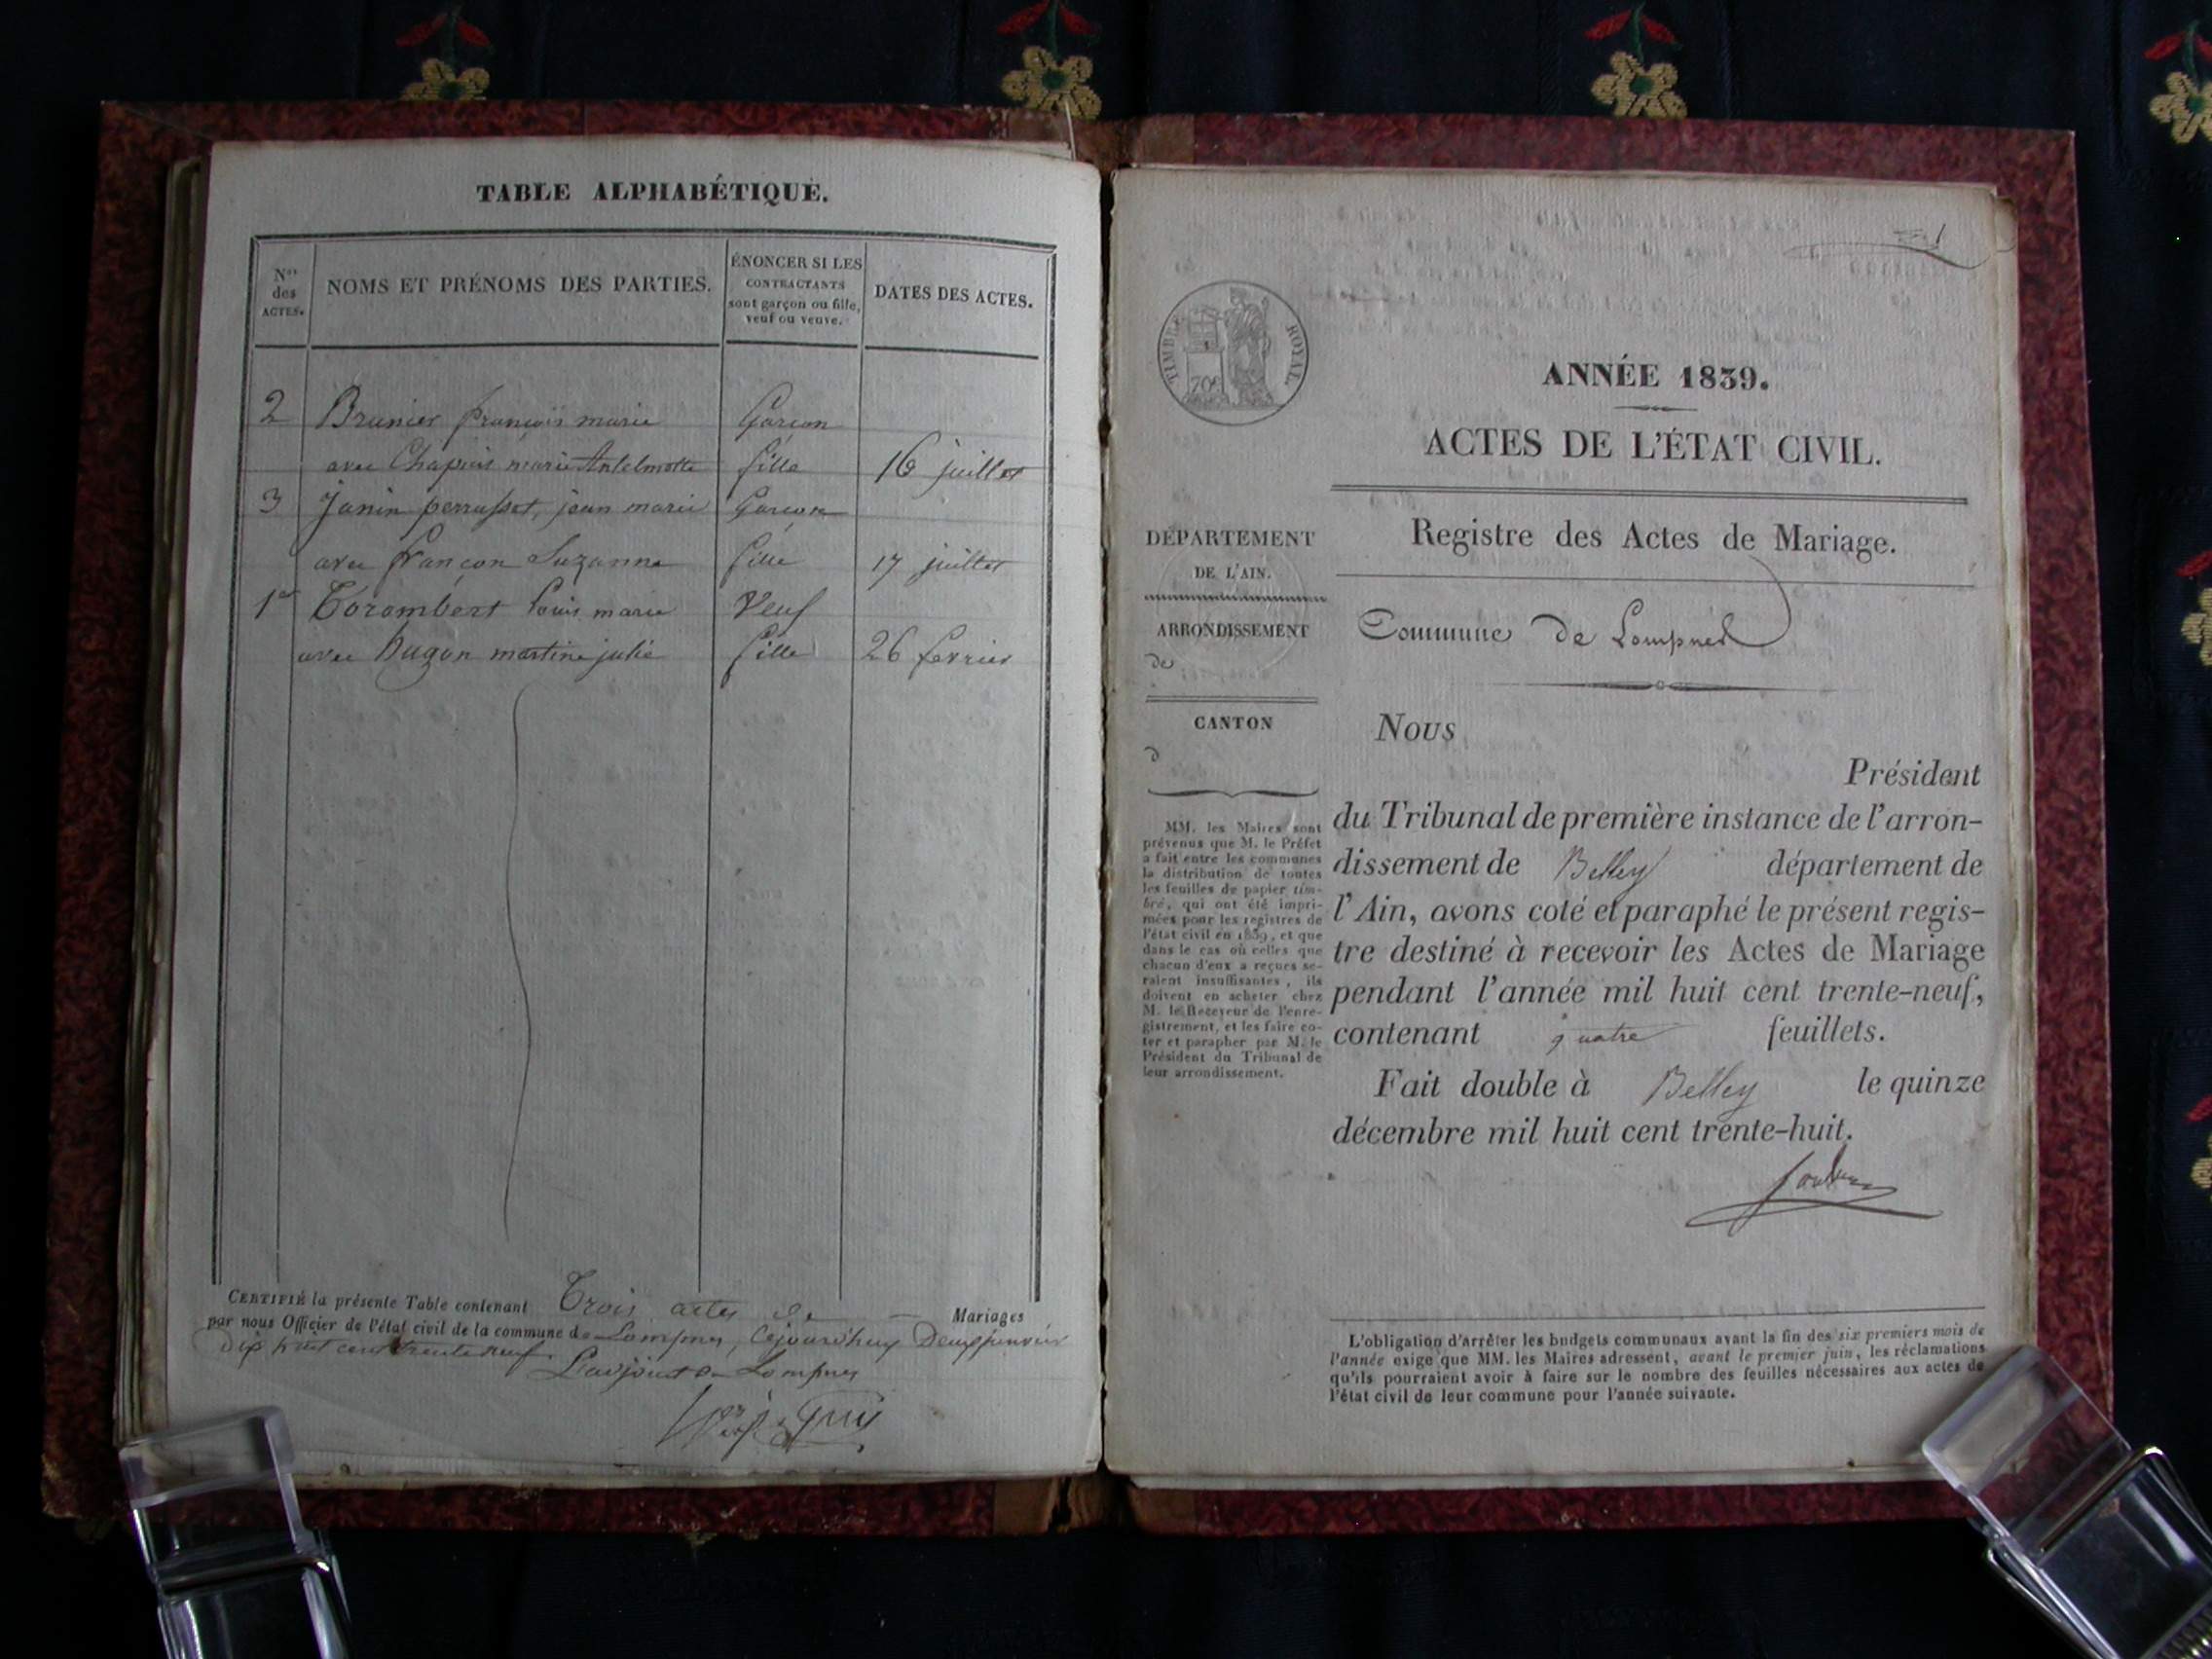 TABLE ALPHABÉTIQUE.
Nos des ACTES.
NOMS ET PRÉNOMS DES PARTIES.
ÉNONCER SI LES
CONTRACTANTS
sont garçon ou fille,
veuf ou veuve.
DATES DES ACTES.
2 Brunier françois marie Garcon
avec Chapuis marie Antelmette fille 16 juillet
3 Janin perrusset, jean marie Garcon
avec françon Suzanne fille 17 juillet
1er Corombert Louis marie Veuf
avec Dugon martine julie fille 26 fevrier
CERTIFIÉ la présente Table contenant Trois actes de Mariages
par nous Officier de l'état civil de la commune de Lompnes, Cejourd'huy Deux janvier
dix huit cent trente neuf
L'adjoint de Lompnes
1
TIMBRE ROYAL.
70c
ANNÉE 1839.
ACTES DE L'ÉTAT CIVIL.
Registre des Actes de Mariage.
Commune de Lompnes
DÉPARTEMENT
DE L'AIN.
ARRONDISSEMENT
de
CANTON
d
MM. les Maires sont
prévenus que M. le Préfet
a fait entre les communes
la distribution de toutes
les feuilles de papier tim-
bré, qui ont été impri-
mées pour les registres de
l'état civil en 1839, et que
dans le cas où celles que
chacun d'eux a reçues se-
raient insuffisantes, ils
doivent en acheter chez
M. le Receveur de l'enre-
gistrement, et les faire co-
ter et parapher par M. le
Président du Tribunal de
leur arrondissement.
Nous
Président
du Tribunal de première instance de l'arron-
dissement de Belley département de
l'Ain, avons coté et paraphé le présent regis-
tre destiné à recevoir les Actes de Mariage
pendant l'année mil huit cent trente-neuf,
contenant quatre feuillets.
Fait double à Belley le quinze
décembre mil huit cent trente-huit.
L'obligation d'arrêter les budgets communaux avant la fin des six premiers mois de
l'année exige que MM. les Maires adressent, avant le premier juin, les réclamations
qu'ils pourraient avoir à faire sur le nombre des feuilles nécessaires aux actes de
l'état civil de leur commune pour l'année suivante.